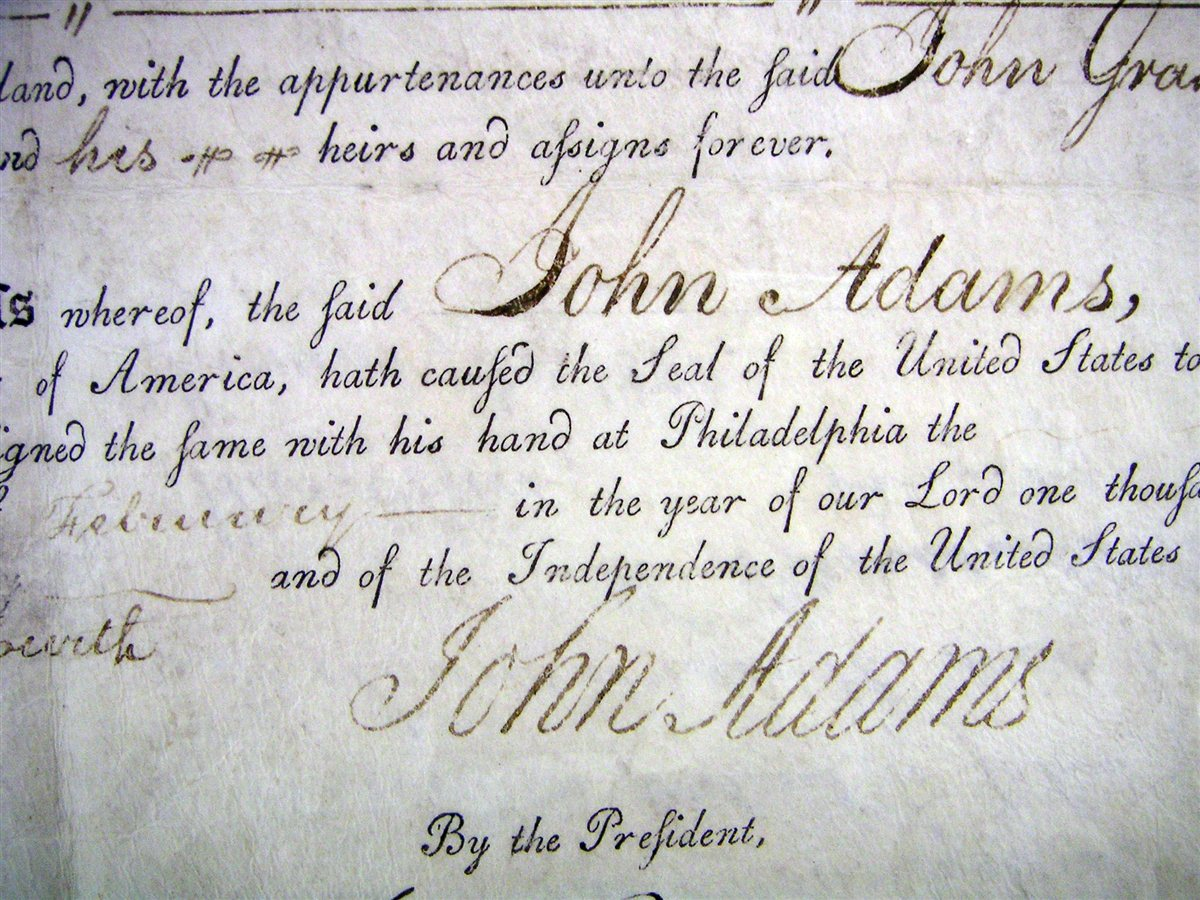 land, with the appurtenances unto the ſaid John Gra
nd his heirs and aſsigns forever.
s whereof, the ſaid John Adams,
of America, hath cauſed the Seal of the United States to
igned the ſame with his hand at Philadelphia the
February in the year of our Lord one thouſa
and of the Independence of the United States
John Adams
By the Preſident,